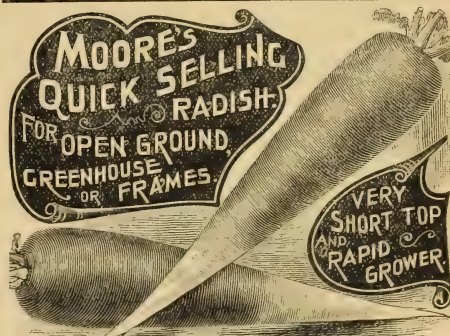 MOORE'S
QUICK SELLING
RADISH.
FOR OPEN GROUND
GREENHOUSE
OR FRAMES.
VERY
SHORT TOP
AND RAPID
GROWER